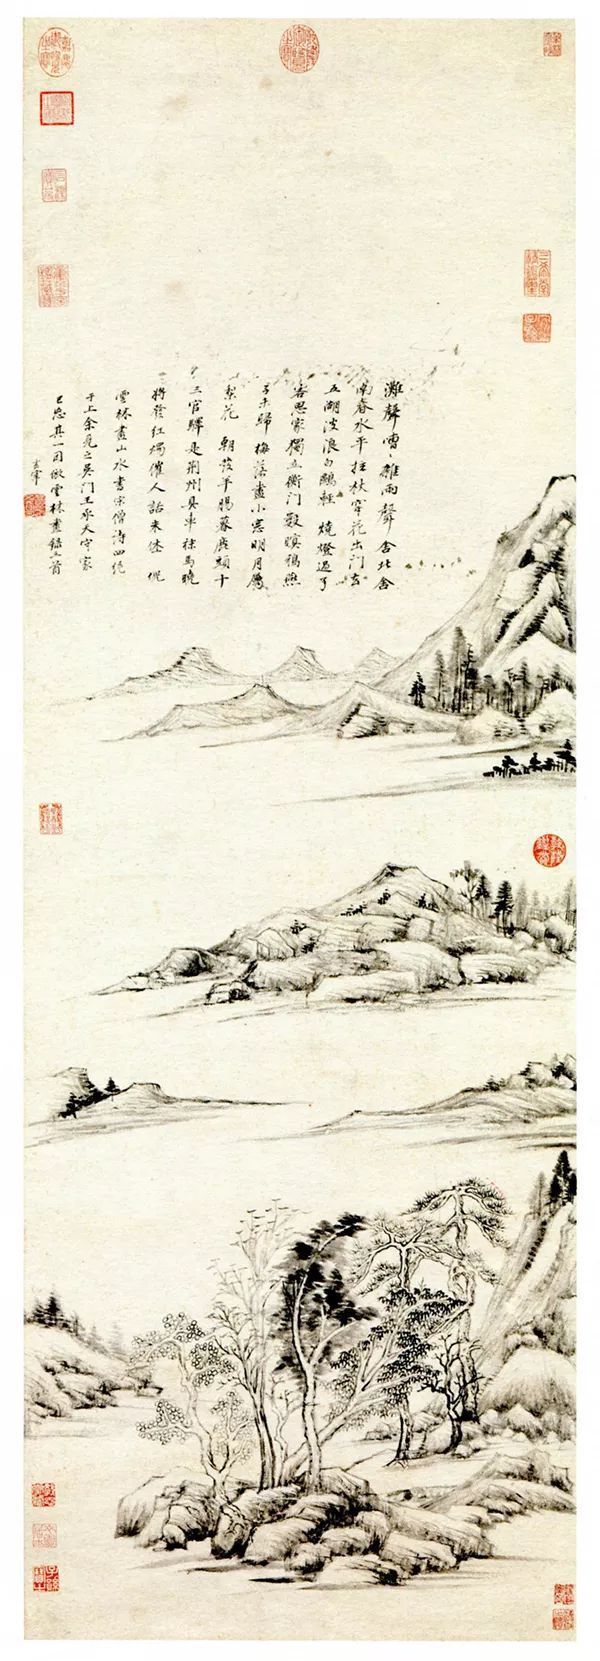 灘聲嘈〻雜雨聲舍北舍
南春水平拄杖穿花出門去
五湖波浪白鷗輕 燒燈過了
客思家獨立衡門數暝鴉燕
子未歸梅落盡小窓明月屬
梨花 朝發羊腸暮鹿頭十
三官驛是荆州具車秣馬曉
將發紅燭催人話未休 倪
雲林畫山水書宗僧詩四絕
于上余見之吳門王承天守家
已忘其一因倣雲林畫錄三首
玄宰